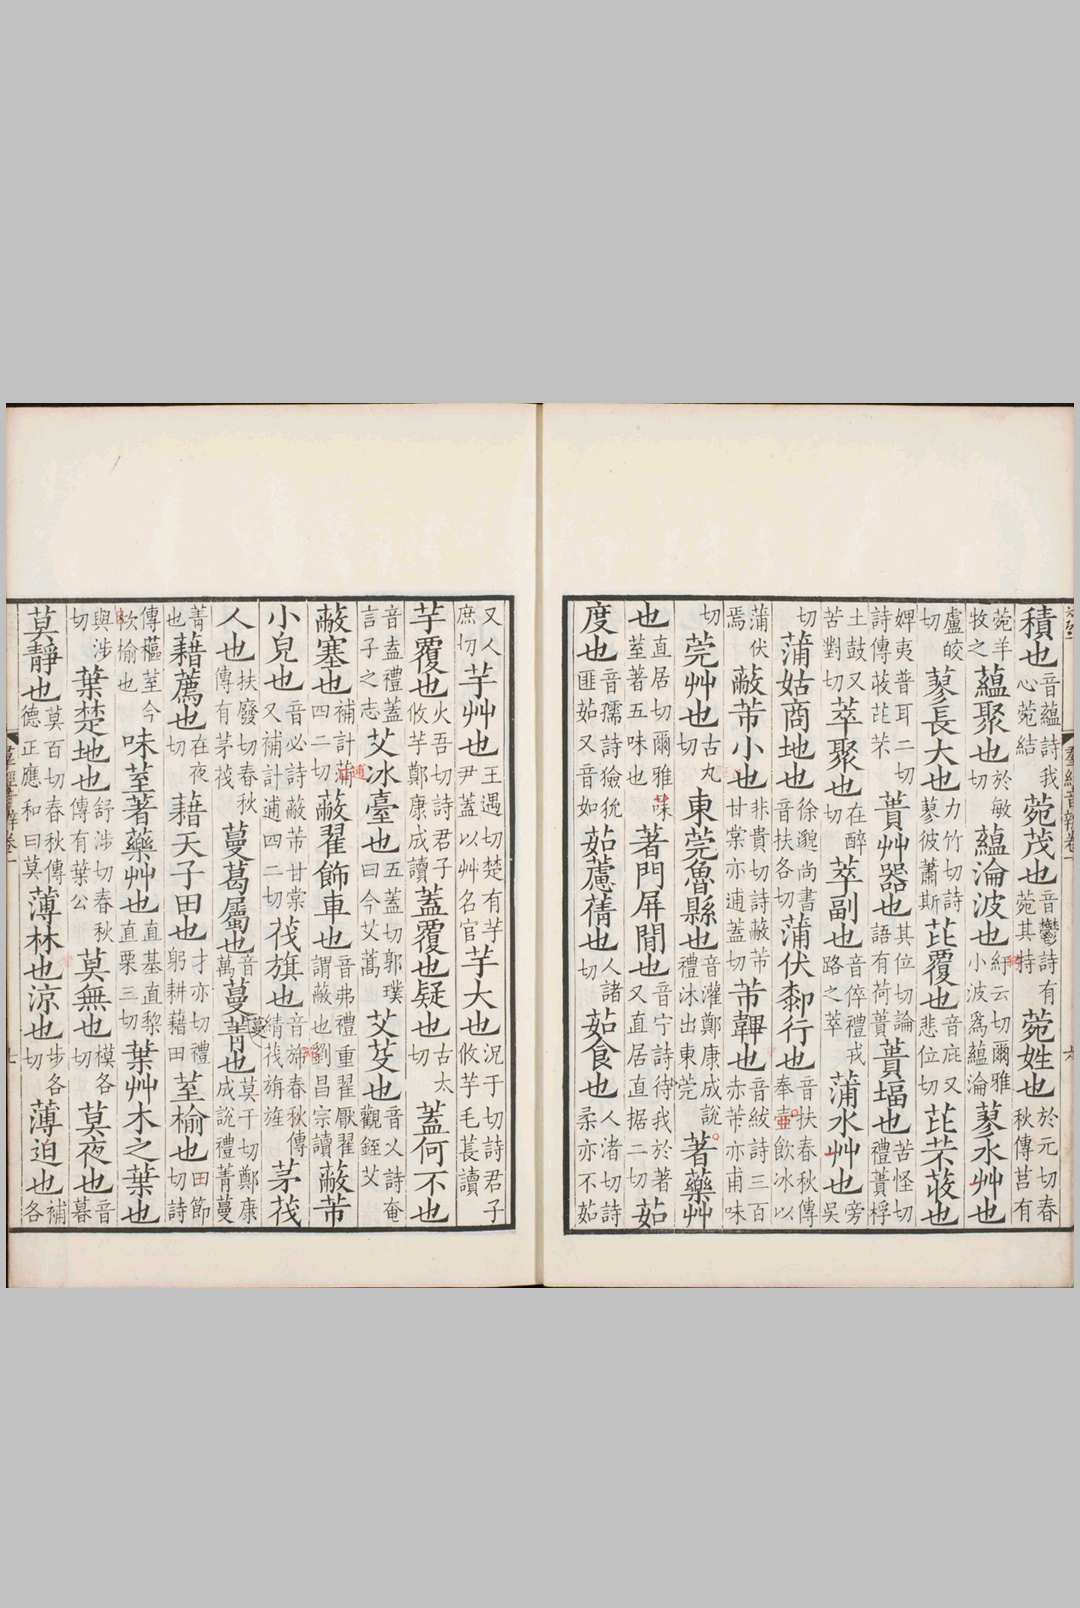 積也音蘊詩我心菀結菀茂也音鬱詩有菀其特菀姓也於元切春秋傳莒有
菀羊牧之蘊聚也於敏切蘊淪波也紆云切爾雅小波爲蘊淪蓼水艸也
盧皎切蓼長大也力竹切詩蓼彼蕭斯芘覆也音庇又悲位切芘芣荍也
婢夷普耳二切詩傳荍芘芣蕢艸器也其位切論語有荷蕢蕢堛也苦怪切禮蕢桴
土鼓又苦對切萃聚也在醉切萃副也音倅禮戎路之萃蒲水艸也旁吳
切蒲姑商地也徐邈尚書音扶各切蒲伏匍行也音扶春秋傳奉壺飲冰以
蒲伏焉蔽芾小也非貴切詩蔽芾甘棠亦逋蓋切芾韠也音紱詩三百赤芾亦甫味
切莞艸也古丸切東莞魯縣也音灌鄭康成說禮沐出東莞著藥艸
也直居切爾雅荎著五味也著門屏閒也音宁詩待我於著又直居直据二切茹
度也音孺詩獫狁匪茹又音如茹藘蒨也人諸切茹食也人渚切詩柔亦不茹
又人庶切芋艸也王遇切楚有芋尹蓋以艸名官芋大也況于切詩君子攸芋毛萇讀
芋覆也火吾切詩君子攸芋鄭康成讀蓋覆也疑也古太切蓋何不也
音盍禮蓋言子之志艾冰臺也五蓋切郭璞曰今艾蒿艾芟也音乂詩奄觀銍艾
蔽塞也補計四二切蔽翟飾車也音弗禮重翟厭翟謂蔽也劉昌宗讀蔽芾
小皃也音必詩蔽芾甘棠又補計逋四二切茷旗也音斾春秋傳綪茷旃旌茅茷
人也扶廢切春秋傳有茅茷蔓葛屬也音萬蔓菁也莫干切鄭康成說禮菁蔓
菁也藉薦也在夜切藉天子田也才亦切禮躬耕藉田荎榆也田節切詩
傳蓲荎今杴榆也味荎著藥艸也直基直黎直栗三切葉艸木之葉也
與涉切葉楚地也舒涉切春秋傳有葉公莫無也模各切莫夜也音暮
莫靜也莫百切春秋傳德正應和曰莫薄林也涼也步各切薄迫也補各